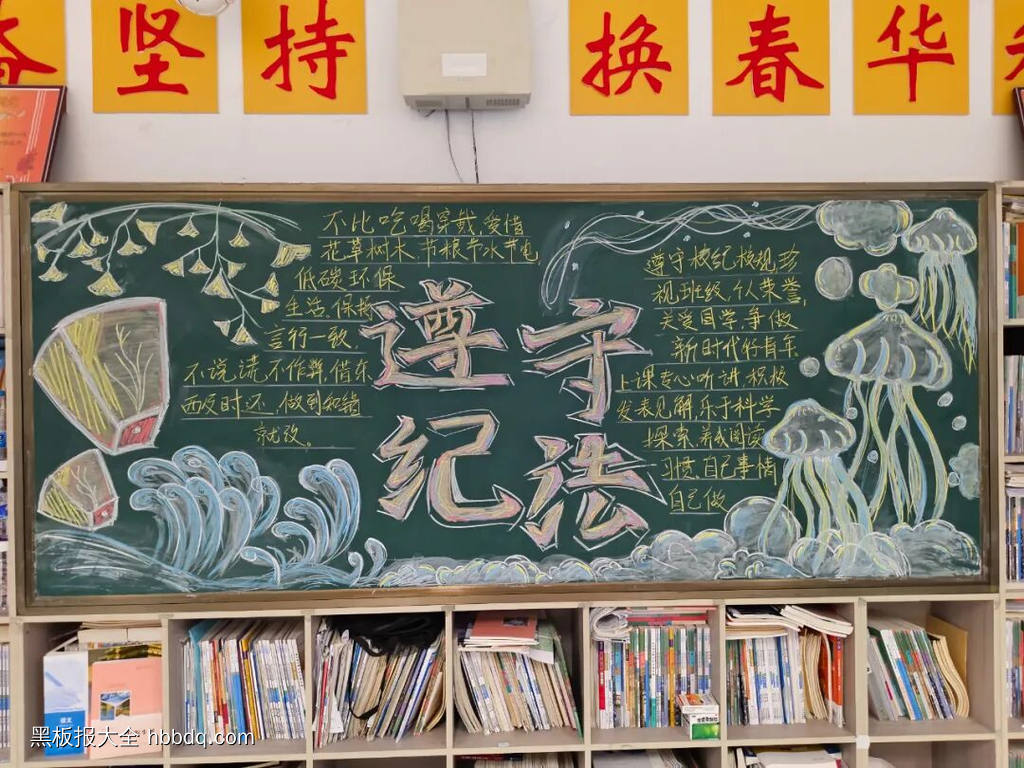 奋 坚 持 换 春 华
不比吃喝穿戴,爱惜
花草树木,节粮节水节电
低碳环保
生活。保持
言行一致,
不说谎,不作弊,借东
西及时还,做到知错
就改。
遵守
纪法
遵守校纪校规,珍
视班级,个人荣誉,
关爱同学,争做
新时代好青年
上课专心听讲,积极
发表见解,乐于科学
探索,养成阅读
习惯,自己事情
自己做
黑板报大全 hbbdq.com